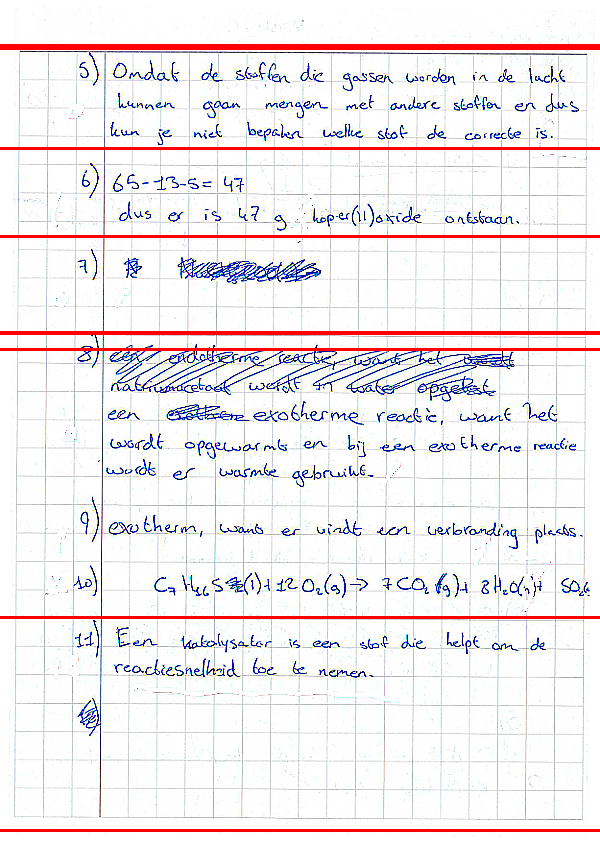 5) Omdat de stoffen die gassen worden in de lucht
kunnen gaan mengen met andere stoffen en dus
kun je niet bepalen welke stof de correcte is.
6) 65-13-5= 47
dus er is 47 g koper(II)oxide ontstaan.
7)
8) een endotherme reactie, want het
natriumacetaat werdt in water opgelost
een exotherme reactie, want het
wordt opgewarmt en bij een exotherme reactie
wordt er warmte gebruikt.
9) exotherm, want er vindt een verbranding plaats.
10) C₇H₁₆S (l) + 12 O₂(g) → 7 CO₂(g) + 8 H₂O( )+ SO₂
11) Een katalysator is een stof die helpt om de
reactiesnelheid toe te nemen.